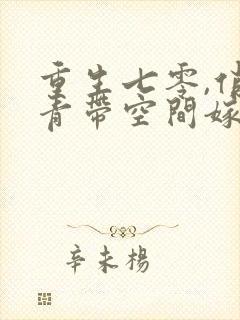 重生七零,俏
青帶空間嫁
辛未楊